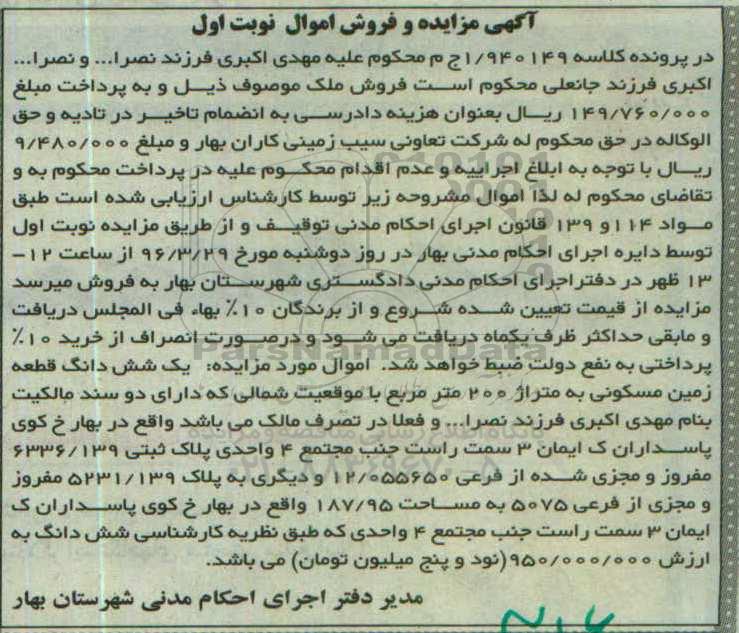 آگهی مزایده و فروش اموال نوبت اول
در پرونده کلاسه ۱/۹۴۰۱۴۹ج م محکوم علیه مهدی اکبری فرزند نصرا... و نصرا...
اکبری فرزند جانعلی محکوم است فروش ملک موصوف ذیل و به پرداخت مبلغ
۱۴۹/۷۶۰/۰۰۰ ریال بعنوان هزینه دادرسی به انضمام تاخیر در تادیه و حق
الوکاله در حق محکوم له شرکت تعاونی سیب زمینی کاران بهار و مبلغ ۹/۴۸۰/۰۰۰
ریال با توجه به ابلاغ اجراییه و عدم اقدام محکوم علیه در پرداخت محکوم به و
تقاضای محکوم له لذا اموال مشروحه زیر توسط کارشناس ارزیابی شده است طبق
مواد ۱۱۴و ۱۳۹ قانون اجرای احکام مدنی توقیف و از طریق مزایده نوبت اول
توسط دایره اجرای احکام مدنی بهار در روز دوشنبه مورخ ۹۶/۳/۲۹ از ساعت ۱۲-
۱۳ ظهر در دفتراجرای احکام مدنی دادگستری شهرستان بهار به فروش میرسد
مزایده از قیمت تعیین شده شروع و از برندگان ۱۰٪ بهاء فی المجلس دریافت
و مابقی حداکثر ظرف یکماه دریافت می شود و درصورت انصراف از خرید ۱۰٪
پرداختی به نفع دولت ضبط خواهد شد. اموال مورد مزایده: یک شش دانگ قطعه
زمین مسکونی به متراژ ۲۰۰ متر مربع با موقعیت شمالی که دارای دو سند مالکیت
بنام مهدی اکبری فرزند نصرا... و فعلا در تصرف مالک می باشد واقع در بهار خ کوی
پاسداران ک ایمان ۳ سمت راست جنب مجتمع ۴ واحدی پلاک ثبتی ۶۳۳۶/۱۳۹
مفروز و مجزی شده از فرعی ۱۲/۰۵۵۶۵۰ و دیگری به پلاک ۵۲۳۱/۱۳۹ مفروز
و مجزی از فرعی ۵۰۷۵ به مساحت ۱۸۷/۹۵ واقع در بهار خ کوی پاسداران ک
ایمان ۳ سمت راست جنب مجتمع ۴ واحدی که طبق نظریه کارشناسی شش دانگ به
ارزش ۹۵۰/۰۰۰/۰۰۰(نود و پنج میلیون تومان) می باشد.
مدیر دفتر اجرای احکام مدنی شهرستان بهار
ParsNamadData